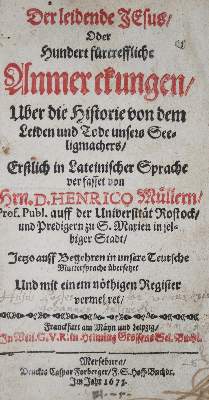 Der leidende JEsus/
Oder
Hundert fürtreffliche
Anmerckungen/
Uber die Historie von dem
Leiden und Tode unsers See-
ligmachers/
Erstlich in Lateinischer Sprache
verfasset von
Hrn. D. HENRICO Müllern/
Prof. Publ. auff der Universität Rostock/
und Predigern zu S. Marien in sel-
biger Stadt/
Jetzo auff Begehren in unsere Teutsche
Muttersprache übersetzet
Und mit einem nöthigen Register
vermehret/
Franckfurt am Mäyn und Leipzig/
In Henning Grossens Sel. Buchl.
Merseburg/
Druckts Caspar Forberger/ F. S. Hoff-Buchdr.
Im Jahr